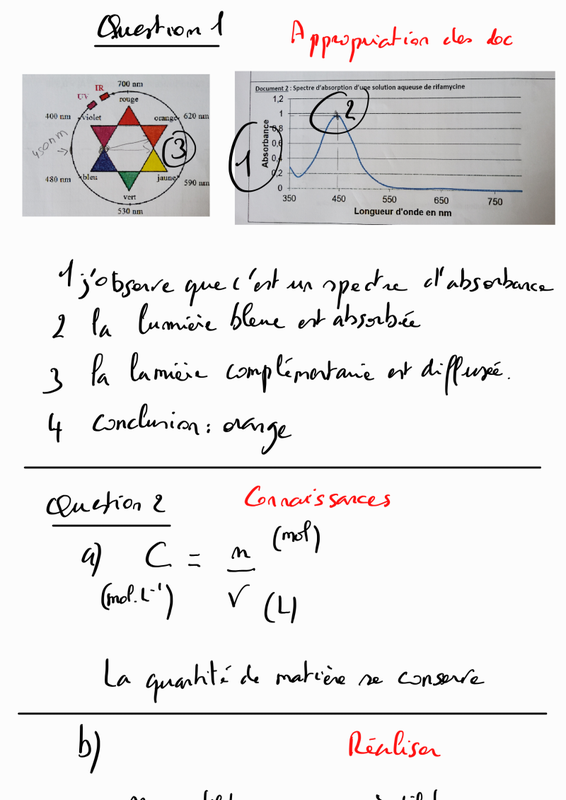 Question 1
Appropriation des doc
IR
UV
700 nm
rouge
400 nm
violet
orange
620 nm
450 nm
3
480 nm
bleu
jaune
590 nm
vert
530 nm
Document 2 : Spectre d'absorption d'une solution aqueuse de rifamycine
1,2
1
0,8
0,6
0,4
0,2
0
Absorbance
1
2
350 450 550 650 750
Longueur d'onde en nm
1 j'observe que c'est un spectre d'absorbance
2 la lumière bleue est absorbée
3 la lumière complémentaire est diffusée.
4 conclusion : orange
Question 2
Connaissances
a) C = n (mol)
(mol.L-1) V (L)
La quantité de matière se conserve
b) Réaliser